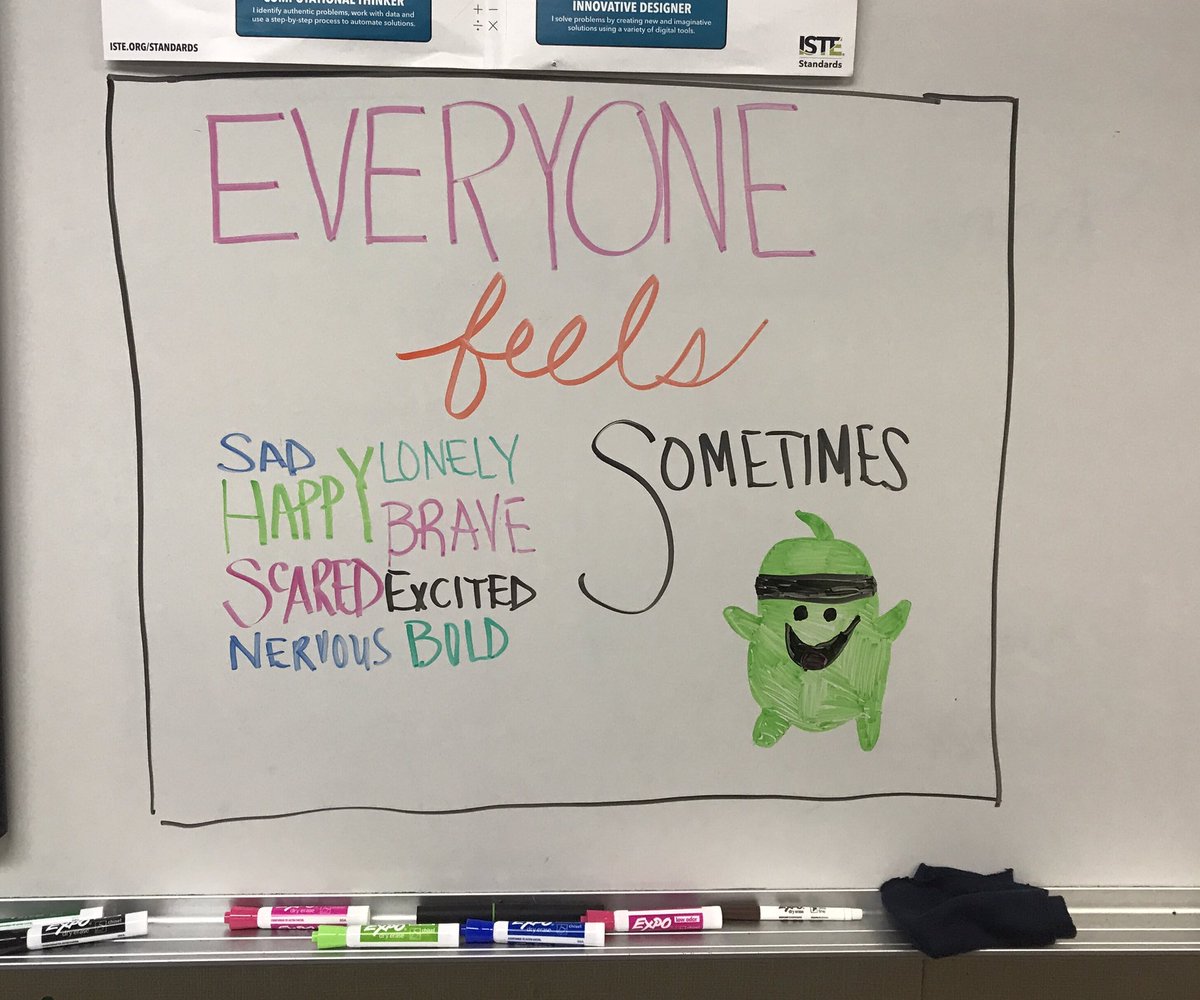 COMPUTATIONAL THINKER
I identify authentic problems, work with data and
use a step-by-step process to automate solutions.
+ −
÷ ×
INNOVATIVE DESIGNER
I solve problems by creating new and imaginative
solutions using a variety of digital tools.
ISTE.ORG/STANDARDS
ISTE
Standards
EVERYONE
feels
SAD LONELY
HAPPY BRAVE
SCARED EXCITED
NERVOUS BOLD
SOMETIMES
EXPO
dry erase
chisel
dry erase
EXPO
dry erase
chisel
EXPO
dry erase
EXPO
low odor
EXPO
dry erase
fine